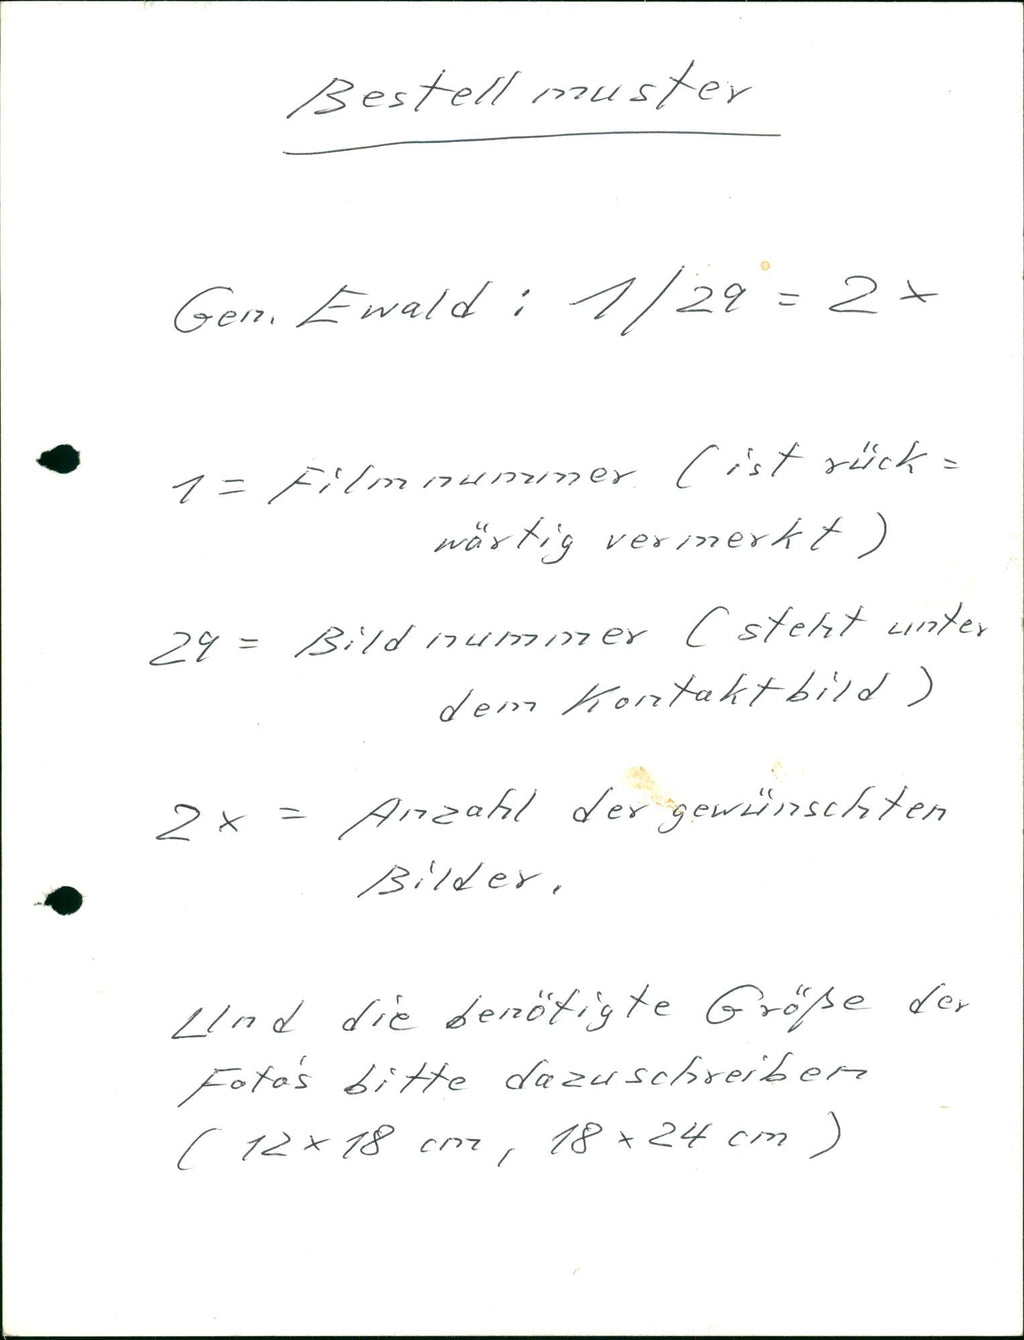 Bestellmuster
Gen. Ewald : 1/29 = 2 x
1 = Filmnummer (ist rück=
wärtig vermerkt)
29 = Bildnummer (steht unter
dem Kontaktbild)
2 x = Anzahl der gewünschten
Bilder.
Und die benötigte Größe der
Foto's bitte dazuschreiben
(12 x 18 cm, 18 x 24 cm)